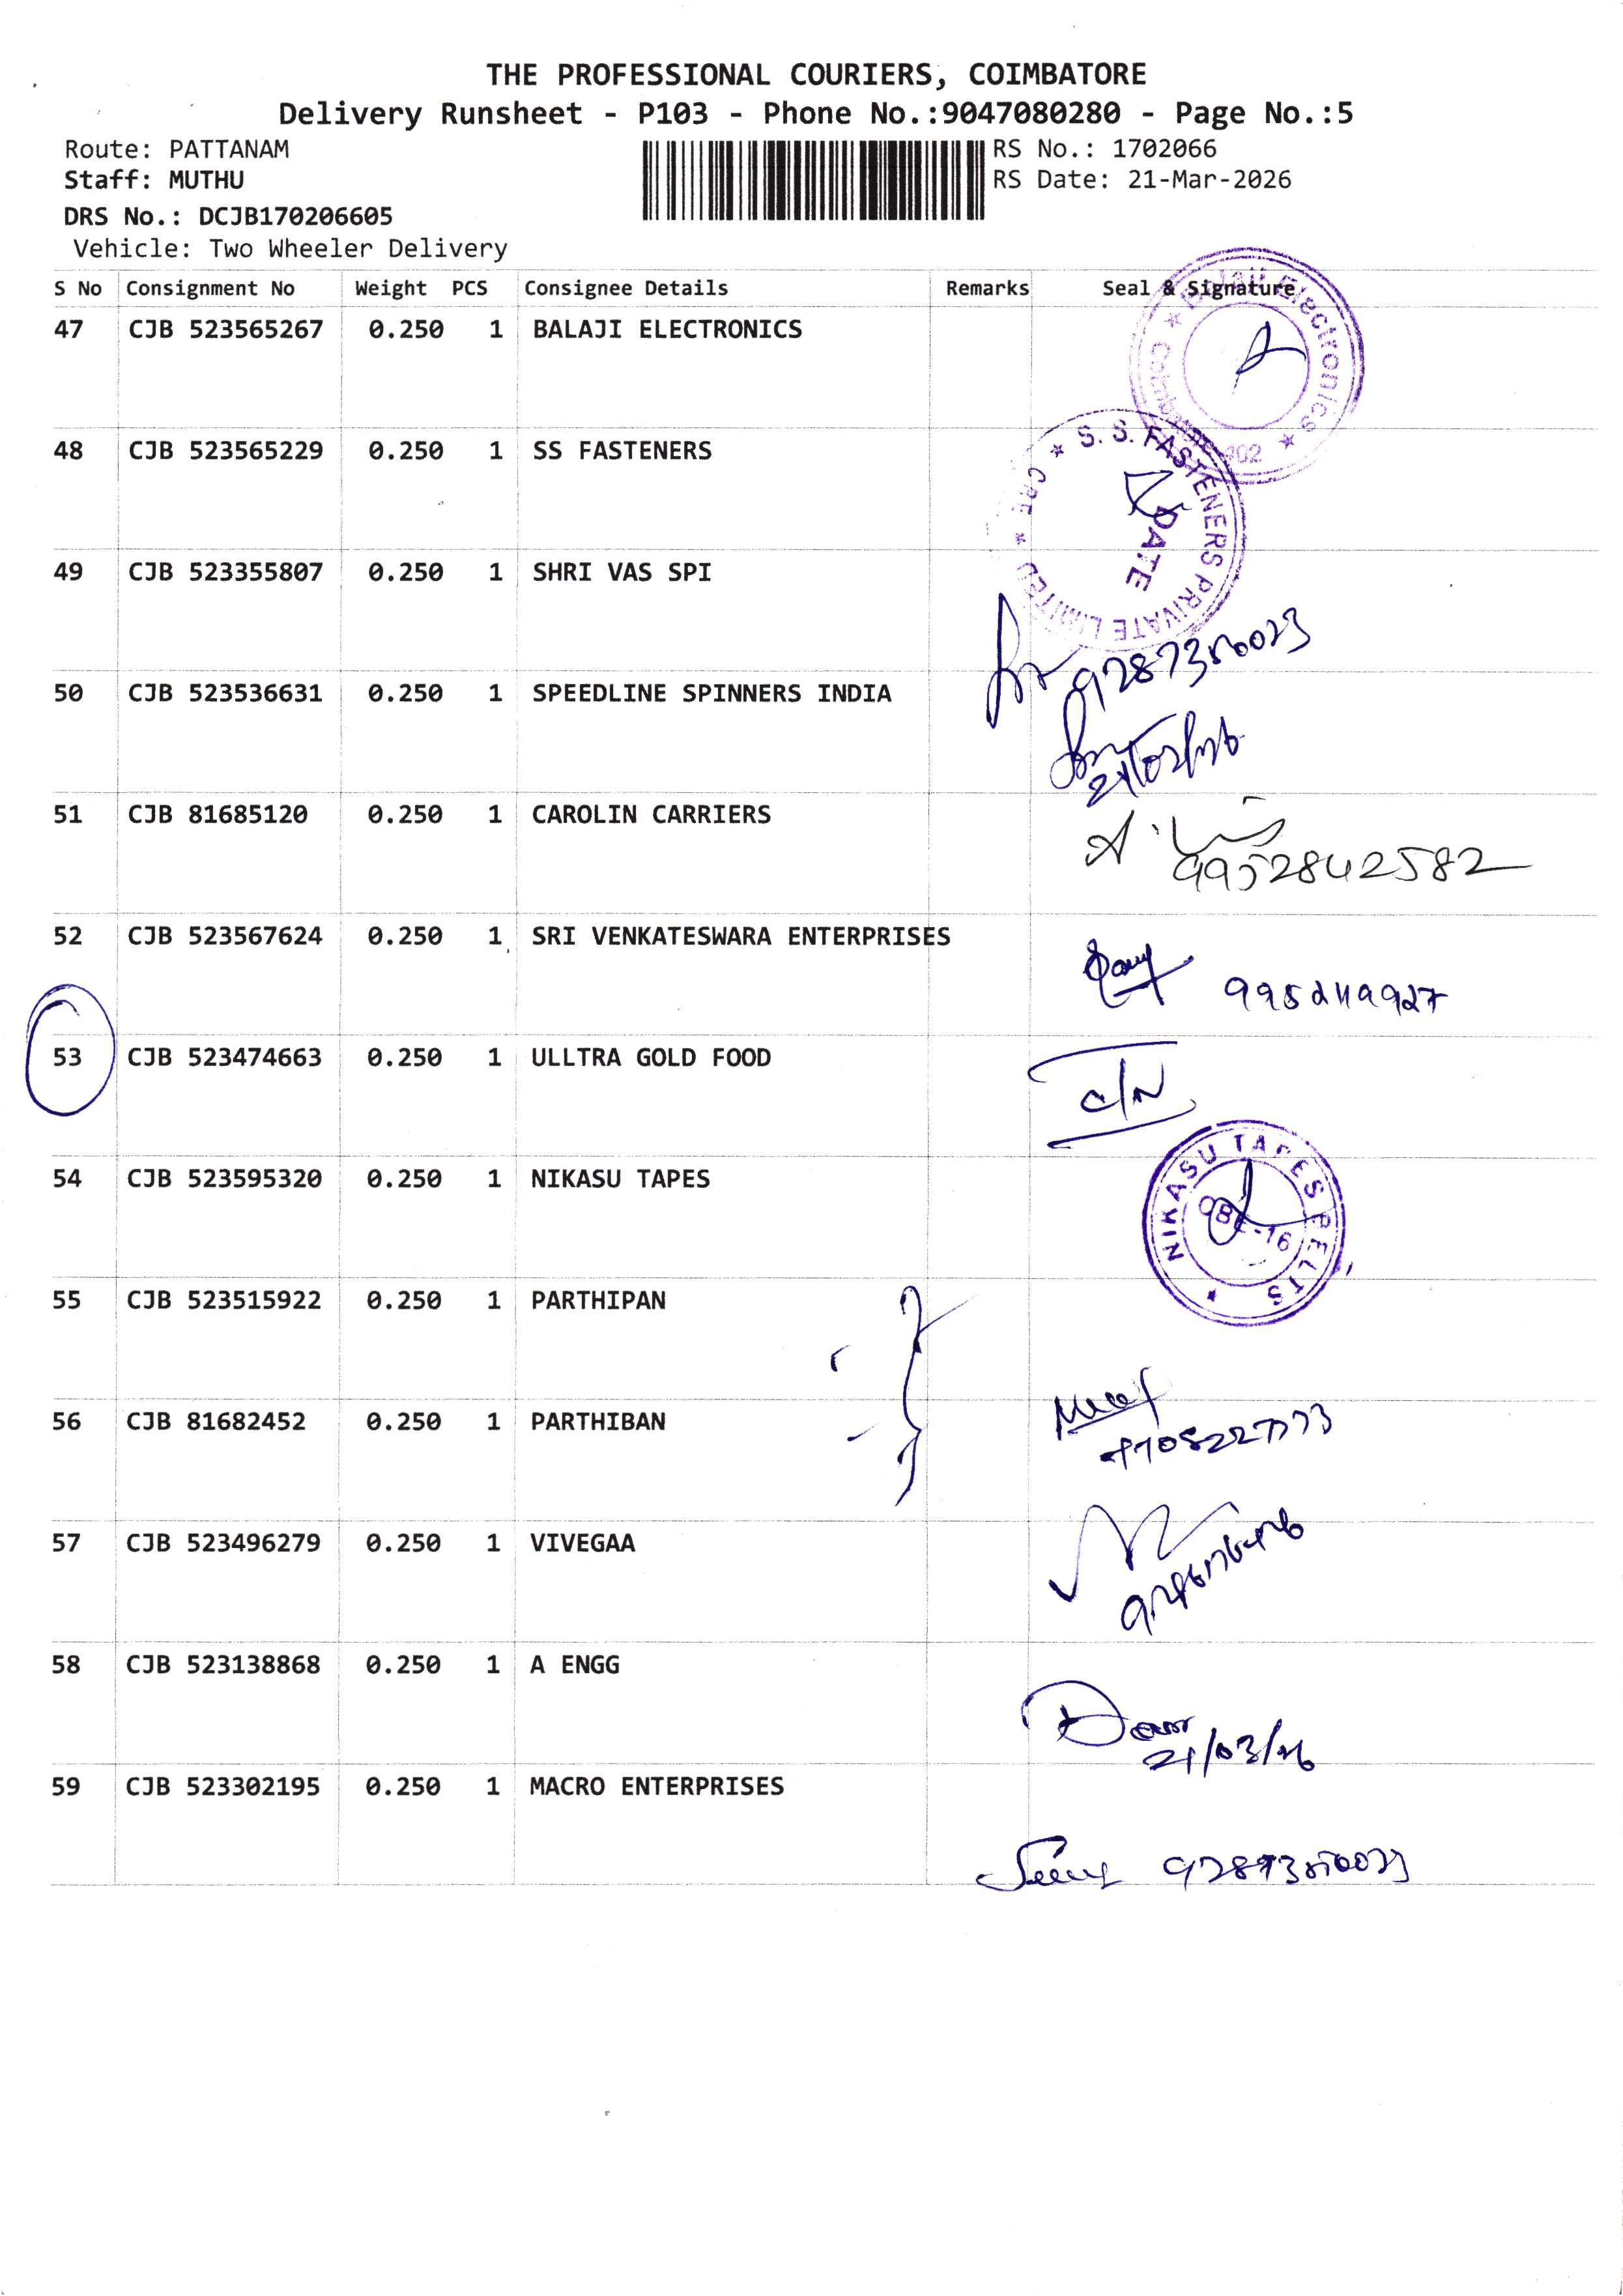 THE PROFESSIONAL COURIERS, COIMBATORE
Delivery Runsheet - P103 - Phone No.:9047080280 - Page No.:5
Route: PATTANAM
RS No.: 1702066
Staff: MUTHU
RS Date: 21-Mar-2026
DRS No.: DCJB170206605
Vehicle: Two Wheeler Delivery
S No Consignment No Weight PCS Consignee Details Remarks Seal & Signature
47 CJB 523565267 0.250 1 BALAJI ELECTRONICS
Balaji Electronics
48 CJB 523565229 0.250 1 SS FASTENERS
S. S. FASTENERS PRIVATE LIMITED * CBE *
DATE
49 CJB 523355807 0.250 1 SHRI VAS SPI
9287350023
50 CJB 523536631 0.250 1 SPEEDLINE SPINNERS INDIA
51 CJB 81685120 0.250 1 CAROLIN CARRIERS
9952842582
52 CJB 523567624 0.250 1 SRI VENKATESWARA ENTERPRISES
53 CJB 523474663 0.250 1 ULLTRA GOLD FOOD
C/N
54 CJB 523595320 0.250 1 NIKASU TAPES
NIKASU TAPES BELTS
CBE-16
55 CJB 523515922 0.250 1 PARTHIPAN
56 CJB 81682452 0.250 1 PARTHIBAN
57 CJB 523496279 0.250 1 VIVEGAA
58 CJB 523138868 0.250 1 A ENGG
21/03/26
59 CJB 523302195 0.250 1 MACRO ENTERPRISES
9287350023